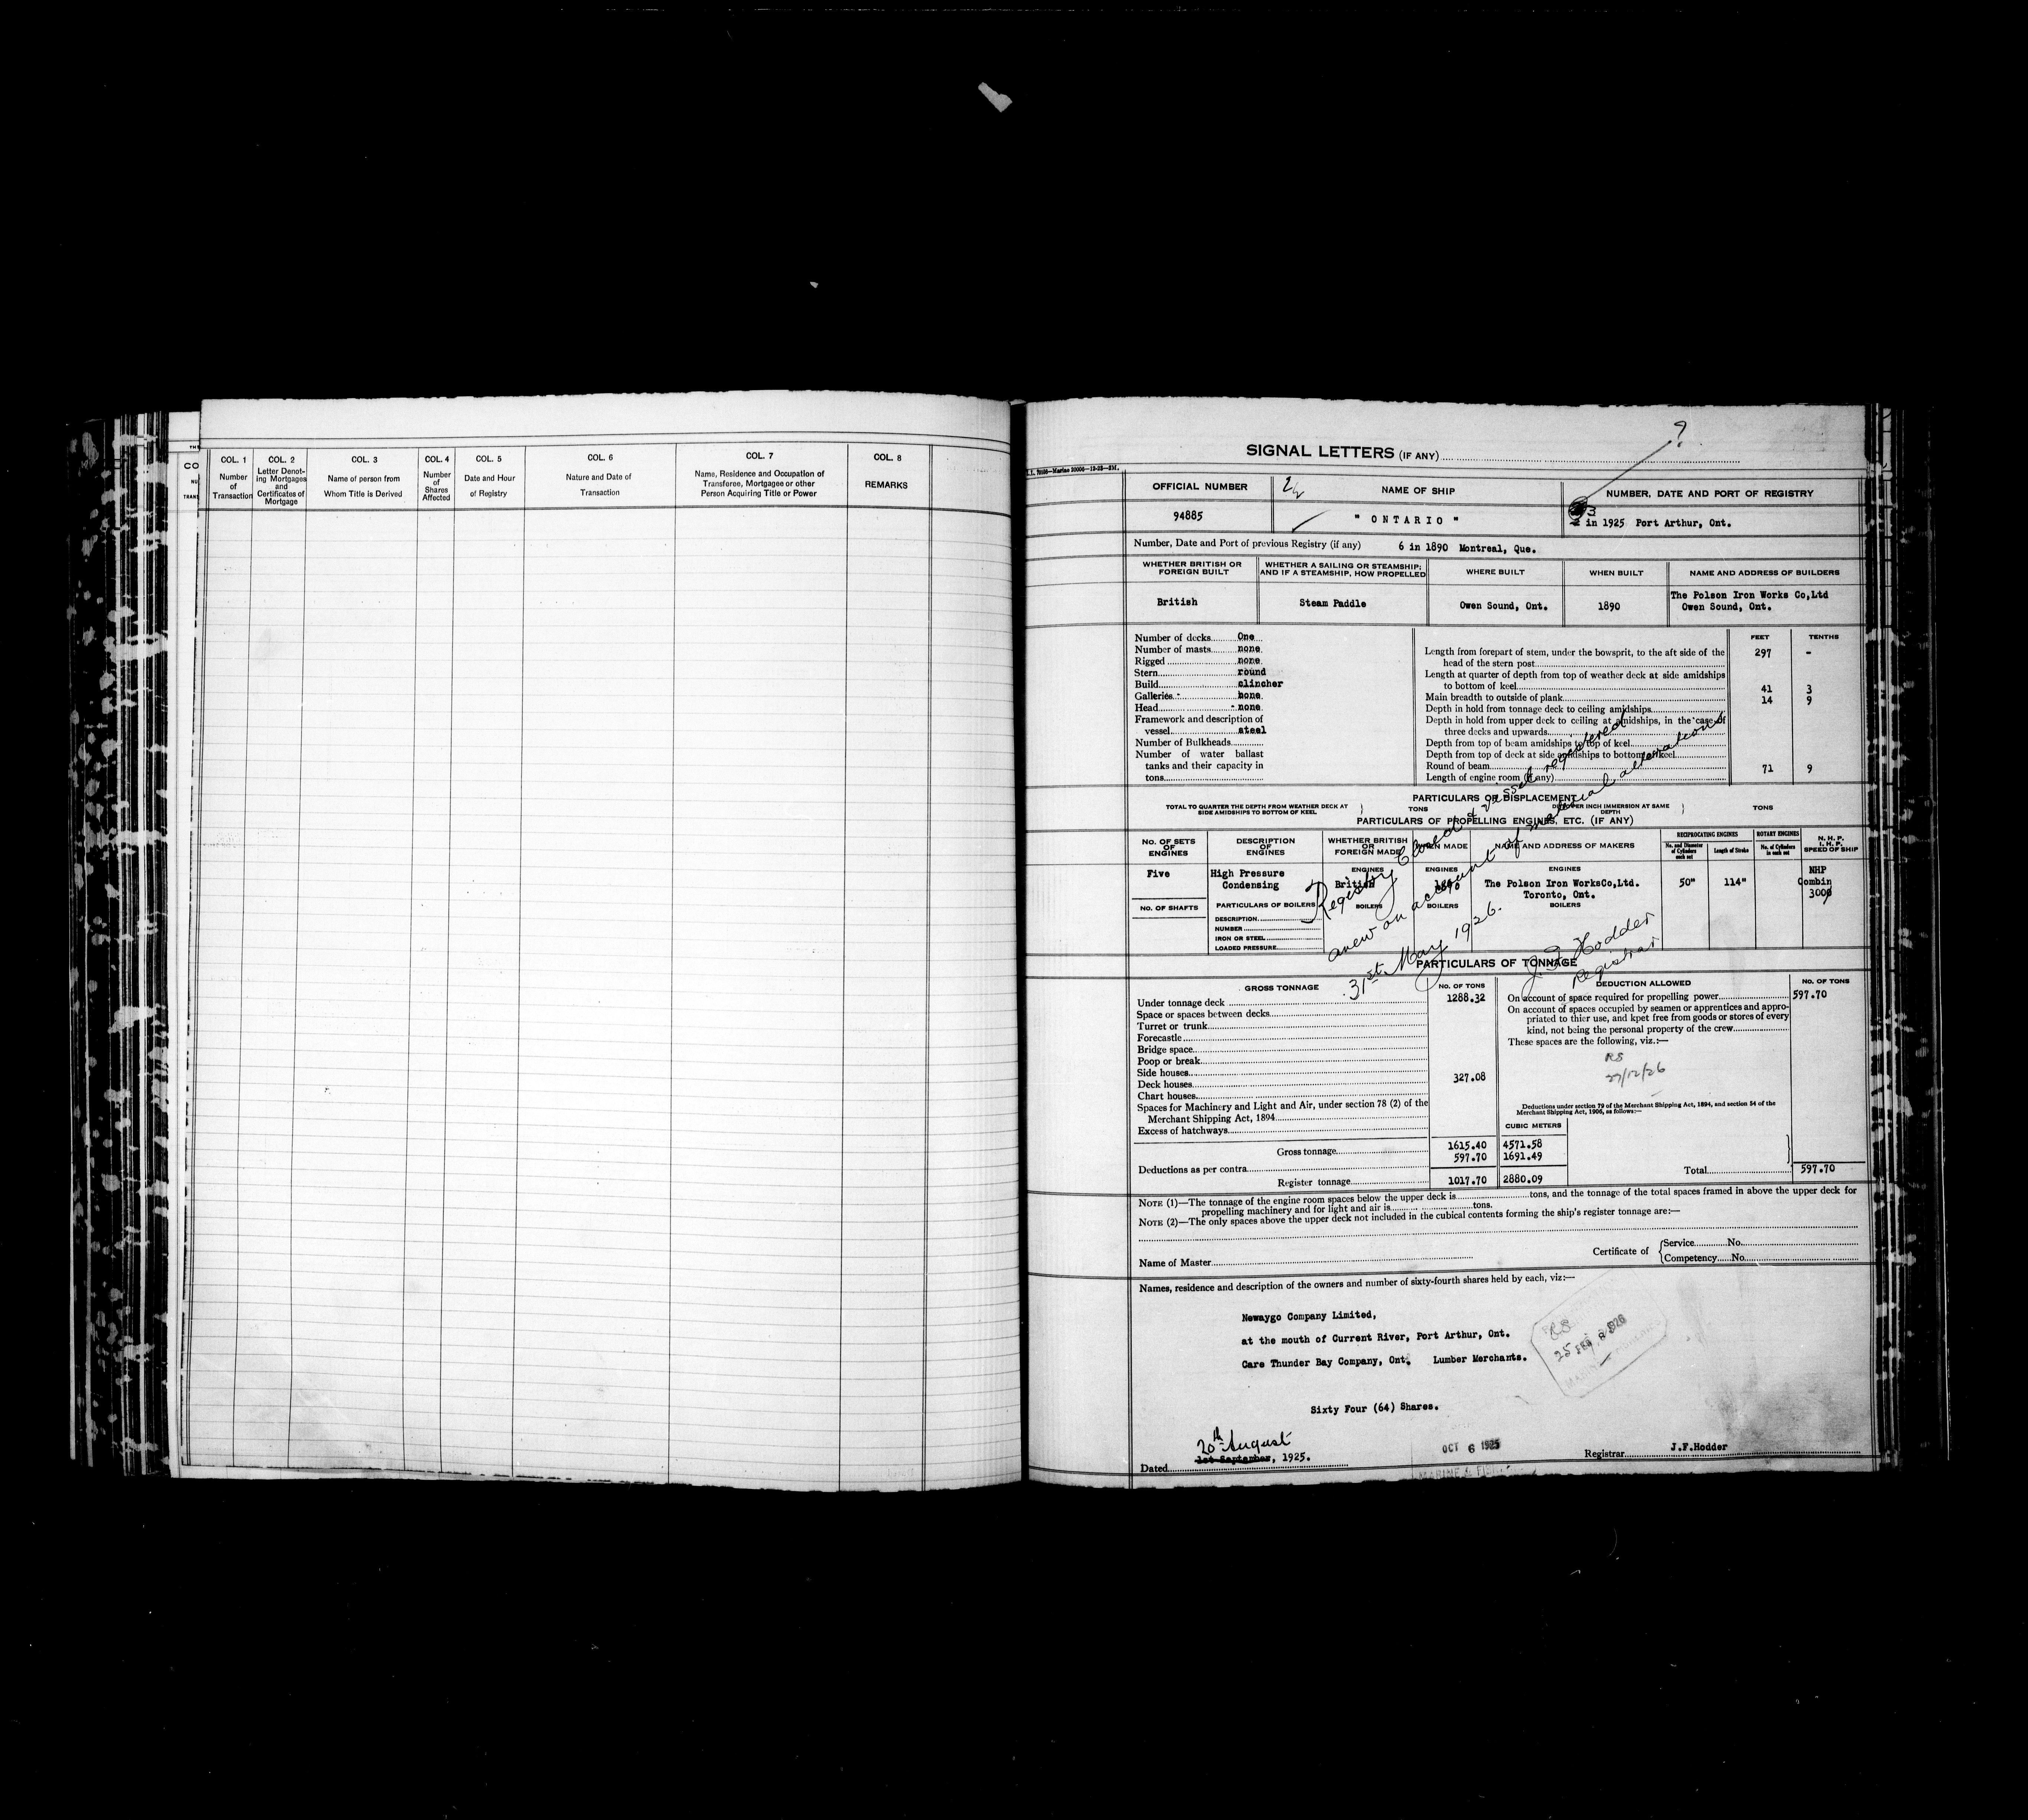 COL. 1 COL. 2 COL. 3 COL. 4 COL. 5 COL. 6 COL. 7 COL. 8
Number of Transaction
Letter Denoting Mortgages and Certificates of Mortgage
Name of person from Whom Title is Derived
Number of Shares Affected
Date and Hour of Registry
Nature and Date of Transaction
Name, Residence and Occupation of Transferee, Mortgagee or other Person Acquiring Title or Power
REMARKS
?
SIGNAL LETTERS (IF ANY)
OFFICIAL NUMBER NAME OF SHIP NUMBER, DATE AND PORT OF REGISTRY
94885 " ONTARIO " 3 in 1925 Port Arthur, Ont.
Number, Date and Port of previous Registry (if any) 6 in 1890 Montreal, Que.
WHETHER BRITISH OR FOREIGN BUILT
WHETHER A SAILING OR STEAMSHIP; AND IF A STEAMSHIP, HOW PROPELLED
WHERE BUILT WHEN BUILT NAME AND ADDRESS OF BUILDERS
British Steam Paddle Owen Sound, Ont. 1890 The Polson Iron Works Co,Ltd
Owen Sound, Ont.
Number of decks One
Number of masts none
Rigged none
Stern round
Build clincher
Galleries none
Head none
Framework and description of
vessel steel
Number of Bulkheads
Number of water ballast
tanks and their capacity in
tons
FEET TENTHS
Length from forepart of stem, under the bowsprit, to the aft side of the
head of the stern post 297 -
Length at quarter of depth from top of weather deck at side amidships
to bottom of keel
Main breadth to outside of plank 41 3
Depth in hold from tonnage deck to ceiling amidships 14 9
Depth in hold from upper deck to ceiling at amidships, in the case of
three decks and upwards
Depth from top of beam amidships to top of keel
Depth from top of deck at side amidships to bottom of keel
Round of beam
Length of engine room (if any) 71 9
PARTICULARS OF DISPLACEMENT
TOTAL TO QUARTER THE DEPTH FROM WEATHER DECK AT SIDE AMIDSHIPS TO BOTTOM OF KEEL TONS
DITTO PER INCH IMMERSION AT SAME DEPTH TONS
PARTICULARS OF PROPELLING ENGINES, ETC. (IF ANY)
NO. OF SETS OF ENGINES
DESCRIPTION OF ENGINES
WHETHER BRITISH OR FOREIGN MADE
WHEN MADE
NAME AND ADDRESS OF MAKERS
RECIPROCATING ENGINES
No. and Diameter of Cylinders each set
Length of Stroke
ROTARY ENGINES
No. of Cylinders in each set
N. H. P.
I. H. P.
SPEED OF SHIP
ENGINES ENGINES ENGINES
Five High Pressure Condensing British 1890 The Polson Iron WorksCo,Ltd.
Toronto, Ont.
50" 114" NHP Combin 3000
NO. OF SHAFTS PARTICULARS OF BOILERS BOILERS BOILERS BOILERS
DESCRIPTION
NUMBER
IRON OR STEEL
LOADED PRESSURE
Registry Closed & vessel registered
anew on account of material alterations
31st May 1926.
J F Hodder
Registrar
PARTICULARS OF TONNAGE
GROSS TONNAGE NO. OF TONS DEDUCTION ALLOWED NO. OF TONS
Under tonnage deck 1288.32
Space or spaces between decks
Turret or trunk
Forecastle
Bridge space
Poop or break
Side houses
Deck houses 327.08
Chart houses
Spaces for Machinery and Light and Air, under section 78 (2) of the
Merchant Shipping Act, 1894
Excess of hatchways
On account of space required for propelling power 597.70
On account of spaces occupied by seamen or apprentices and appro-
priated to thier use, and kpet free from goods or stores of every
kind, not being the personal property of the crew
These spaces are the following, viz.:—
RS
29/12/26
Deductions under section 79 of the Merchant Shipping Act, 1894, and section 54 of the
Merchant Shipping Act, 1906, as follows:—
CUBIC METERS
Gross tonnage 1615.40 4571.58
Deductions as per contra 597.70 1691.49
Total 597.70
Register tonnage 1017.70 2880.09
NOTE (1)—The tonnage of the engine room spaces below the upper deck is tons, and the tonnage of the total spaces framed in above the upper deck for
propelling machinery and for light and air is tons.
NOTE (2)—The only spaces above the upper deck not included in the cubical contents forming the ship's register tonnage are:—
Name of Master
Certificate of
Service No.
Competency No.
Names, residence and description of the owners and number of sixty-fourth shares held by each, viz:—
Newaygo Company Limited,
at the mouth of Current River, Port Arthur, Ont.
Care Thunder Bay Company, Ont. Lumber Merchants.
Sixty Four (64) Shares.
20th August
1st September, 1925.
Dated
OCT 6 1925
Registrar J.F.Hodder